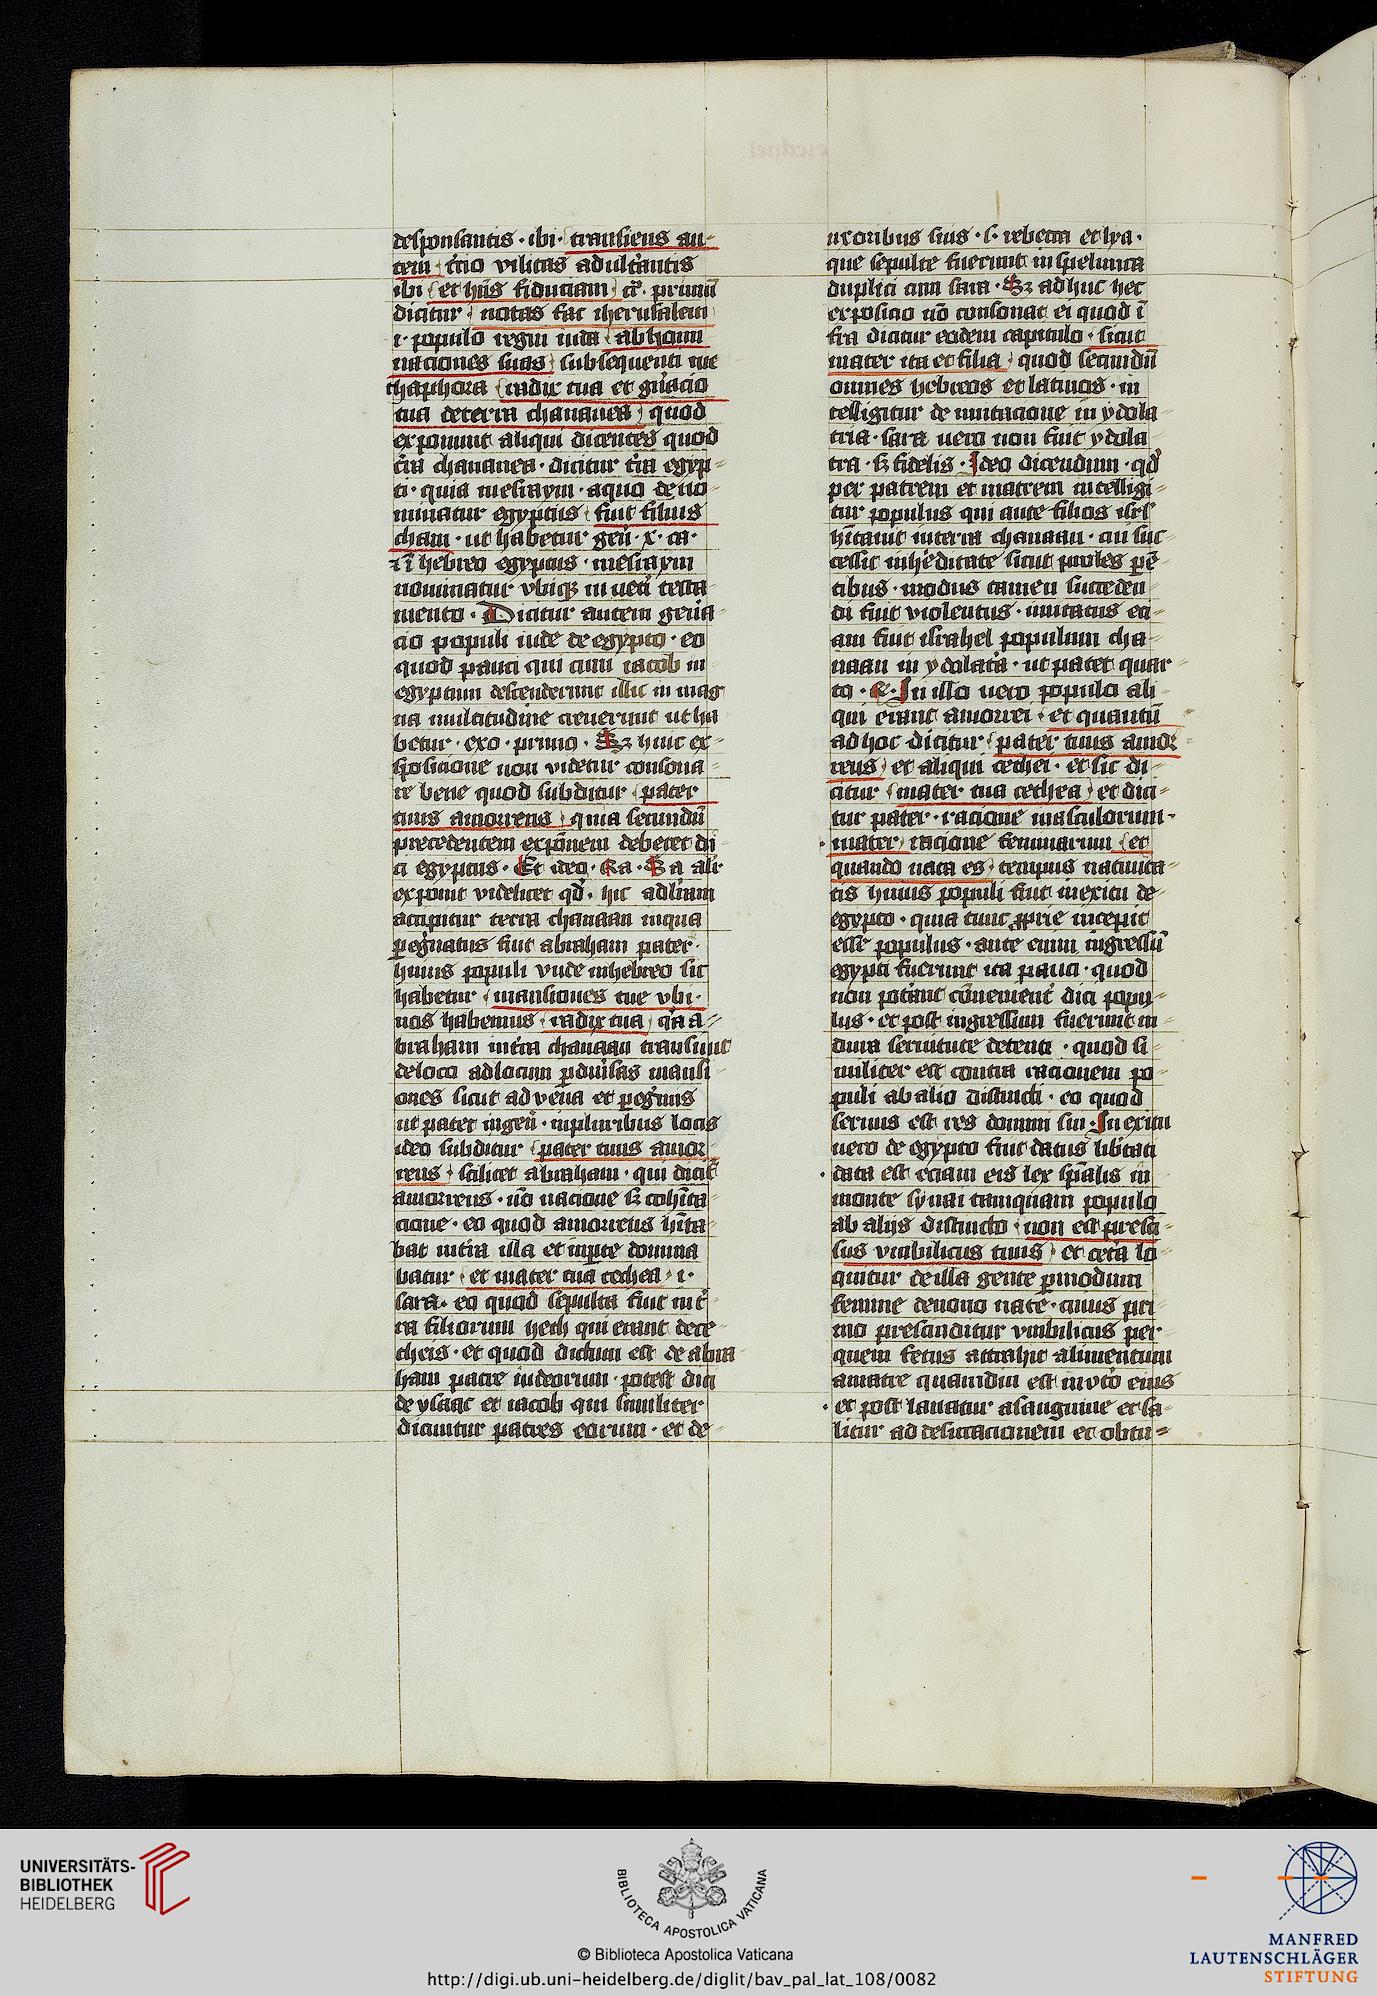 desponsantis · ibi · transiens au-
tem t̄cio vilitas adult̄antis
ibi et hiis fiduciam c̄t · primū
dicitur notas fac iherusalem
i · populo regni iuda abhomi
naciones suas subsequenti me
thaphora radix tua et gn̄acio
tua deterra chananea quod
exponunt aliqui dicentes quod
t̄ra chananea · dicitur t̄ra egyp-
ti · quia mesraym · aquo deno
minatur egyptus fuit filius
cham · ut habetur gen̄ · x · ca ·
⁊ ī hebreo egyptus · mesraym
nominatur vbiq₃ in uet̄i testa
mento · Dicitur autem gen̄a
cio populi iude de egypto · eo
quod pauci qui cum iacob in
egyptum descenderunt illic in mag
na multitudine creuerunt ut ha
betur · exo · primo · S₃ huic ex-
sposicione non videtur consona
re bene quod subditur pater
tuus amorreus quia secundū
precedentem exp̄onem deberet di
ci egyptus · Et ideo · Ra · Sa alr̄
exponit videlicet qd̄ · hic adlr̄am
accipitur terra chanaan inqua
peg̓natus fuit abraham pater ·
huius populi vnde inhebreo sic
habetur mansiones tue vbi ·
nos habemus radix tua q̄a a-
braham int̄ra chanaan transiuit
deloco adlocum p̱diu̓sas mansi-
ones sicut aduena et pegr̓inus
ut patet ingen̄ · inpluribus locis
ideo subditur pater tuus amor-
reus · scilicet abraham · qui dicit᷑
amorreus · nō nacione s₃ cohīta
cione · eo quod amorreus hīta-
bat int̄ra illa et inp̱te domina
batur et mater tua cethea · i ·
sara · eo quod sepulta fuit in t̄
ra filiorum heth qui erant cete-
theis · et quod dictum est de abra-
ham patre iudeorum · potest dici
de ysaac et iacob qui similiter
dicuntur patres eorum · et de-
uxoribus suis · s · rebecca et lya ·
que sepulte fuerunt in spelunca
duplici cum sara · S₃ adhuc hec
exposicio nō consonat ei quod ī
fra dicitur eodem capitulo · sicut
mater ita et filia quod secundū
omnes hebreos et latinos · in
telligitur de imitacione in ydola
tria · sara uero non fuit ydola
tra · s₃ fidelis · Ideo dicendum · qd̄
per patrem et matrem intelligi-
tur populus qui ante filios isrł
hītauit interra chanaan · cui suc
cessit inhe̓ditate sicut proles pē
tibus · modus tamen succeden
di fuit violentus · imitatus eci-
am fuit israhel populum cha-
naan in ydolatr̄a · ut patet quar-
to · R · In illo uero populo ali-
qui erant amorrei · et quantū
adhoc dicitur pater tuus amor
reus et aliqui cethei · et sic di-
citur mater tua cethea et dici-
tur pater · racione masculorum ·
mater racione feminarum et
quando nata es tempus natiuita-
tis huius populi fuit inexitu de-
egypto · quia tunc p̱prie incepit
esse populus · ante enim ingressū
egypti fuerunt ita pauci · quod
non pot̓ant cōuenient̓ dici popu-
lus · et post ingressum fuerunt in
dura seruitute detenti · quod si
militer est contra racionem po
puli ab alio distincti · eo quod
seruus est res domini sui · In exitu
uero de egypto fuit datus lib̓tati
data est eciam eis lex sp̄alis in
monte synai tamquam populo
ab alijs distincto non est presci-
sus vmbilicus tuus et cet̓a lo
quitur deilla gente p̱modum
femine denouo nate · cuius pri
mo prescinditur vmbilicus per-
quem fetus attrahit alimentum
amatre quamdiu est inut̓o eius
et post lauatur asanguine et sa-
litur ad desiccacionem et obtu-
UNIVERSITÄTS-
BIBLIOTHEK
HEIDELBERG
BIBLIOTECA APOSTOLICA VATICANA
© Biblioteca Apostolica Vaticana
http://digi.ub.uni-heidelberg.de/diglit/bav_pal_lat_108/0082
MANFRED
LAUTENSCHLÄGER
STIFTUNG